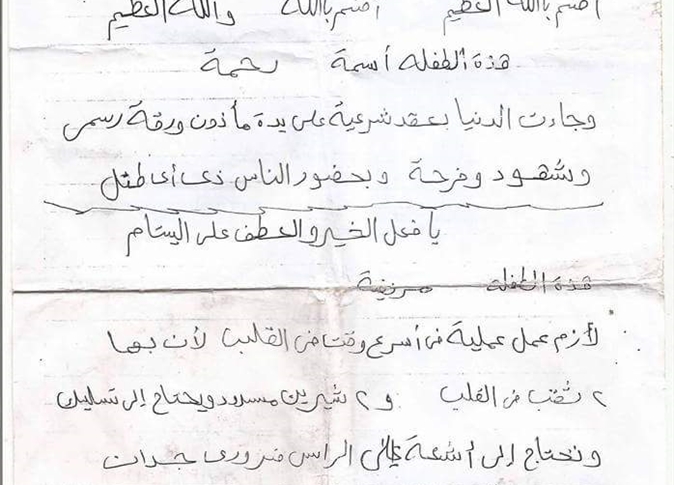 اقسم باالله العظيم اقسم باالله والله العظيم
هذة الطفله أسمة رحمة
وجاءت الدنيا بعقد شرعية على يدة مأذون ورقة رسمى
وشهود وفرحة وبحضور الناس ذى أى طفل
يا فعل الخير والعطف على اليتام
هذة الطفله مريضة
لأزم عمل عملية فى أسرع وقت فى القلب لأن بها
٢ ثقب فى القلب و ٢ شيريين مسدود ويحتاج إلى تسليك
ونحتاج إلى أشعة على الراس ضرورى جدات